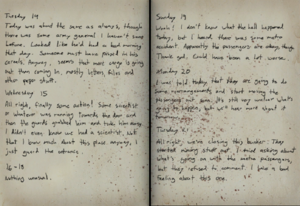 Tuesday 14
Today was about the same as always, though
there was some army general I haven't seen
before. Looked like he'd had a bad morning
that day. Someone must have pissed in his
cereals. Anyway, seems that more cargo is going
out than coming in, mostly letters, files and
other paper stuff.
Wednesday 15
All right, finally some action! Some scientist
or whatever was running towards the door and
then the guards grabbed him and took him away.
I didn't even know we had a scientist, not
that I know much about this place anyway, I
just guard the entrance.
16-18
Nothing unusual.
Sunday 19
Woah! I don't know what the hell happened
today, but I heard there was some metro
accident. Apparently the passengers are okay, though.
Thank god, could have been a lot worse.
Monday 20
I was told today that they are going to do
some rearrangements and start moving the
passengers out soon. It's still very unclear what's
going to happen, but we'll hear more about it
tomorrow.
Tuesday 21
All right, we're closing this bunker. They
started moving stuff out. I tried asking about
what's going on with the metro passengers,
but they refused to comment. I have a bad
feeling about this one.